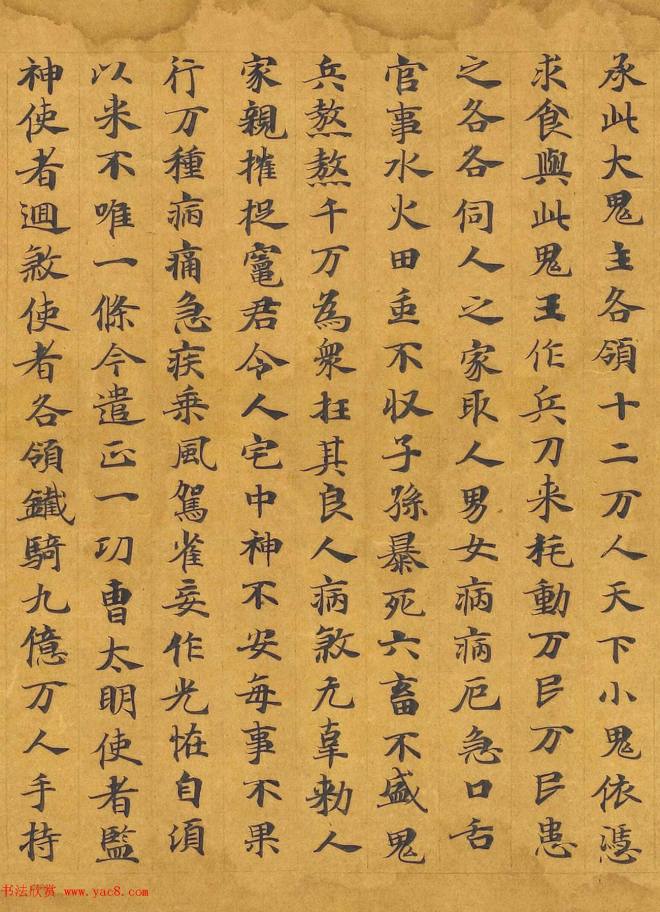 承此大鬼主各領十二万人天下小鬼依憑
求食與此鬼王作兵刀来耗動万民万民患
之各各伺人之家取人男女病病厄急口舌
官事水火田蚕不収子孫暴死六畜不盛鬼
兵熬熬千万為衆抂其良人病煞无辜勑人
家親摧捉竈君令人宅中神不安每事不果
行万種病痛急疾乗風駕雀妄作光恠自須
以来不唯一條今遣正一功曹太明使者監
神使者週煞使者各領鐵騎九億万人手持
书法欣赏 www.yac8.com